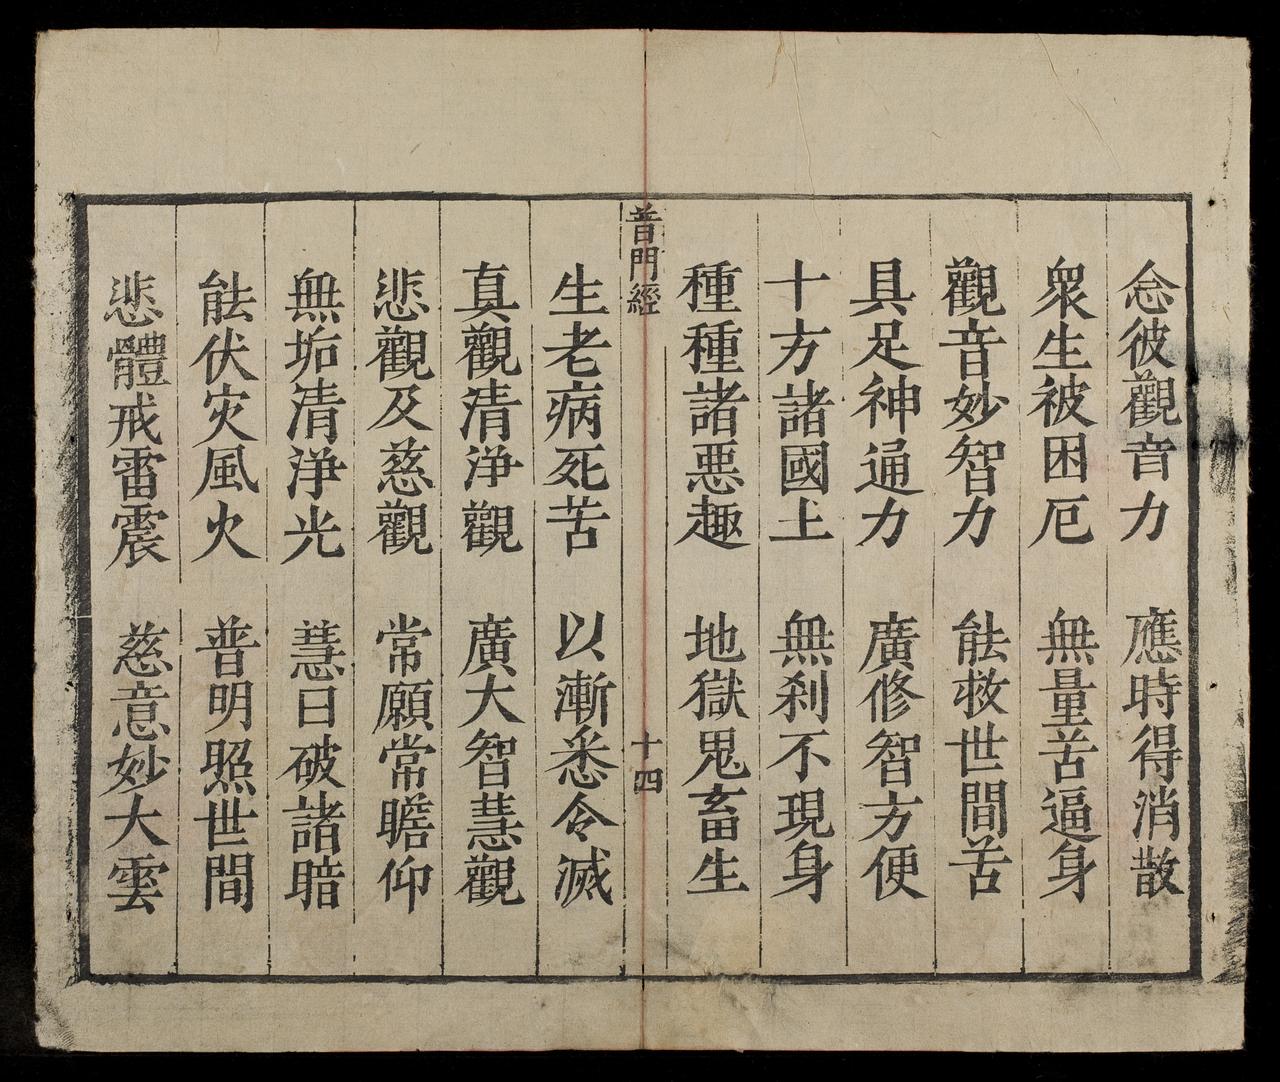 念彼觀音力　應時得消散
衆生被困厄　無量苦逼身
觀音妙智力　能救世間苦
具足神通力　廣修智方便
十方諸國土　無刹不現身
種種諸惡趣　地獄鬼畜生
普門經　十四
生老病死苦　以漸悉令滅
真觀清淨觀　廣大智慧觀
悲觀及慈觀　常願常瞻仰
無垢清淨光　慧日破諸暗
能伏灾風火　普明照世間
悲體戒雷震　慈意妙大雲